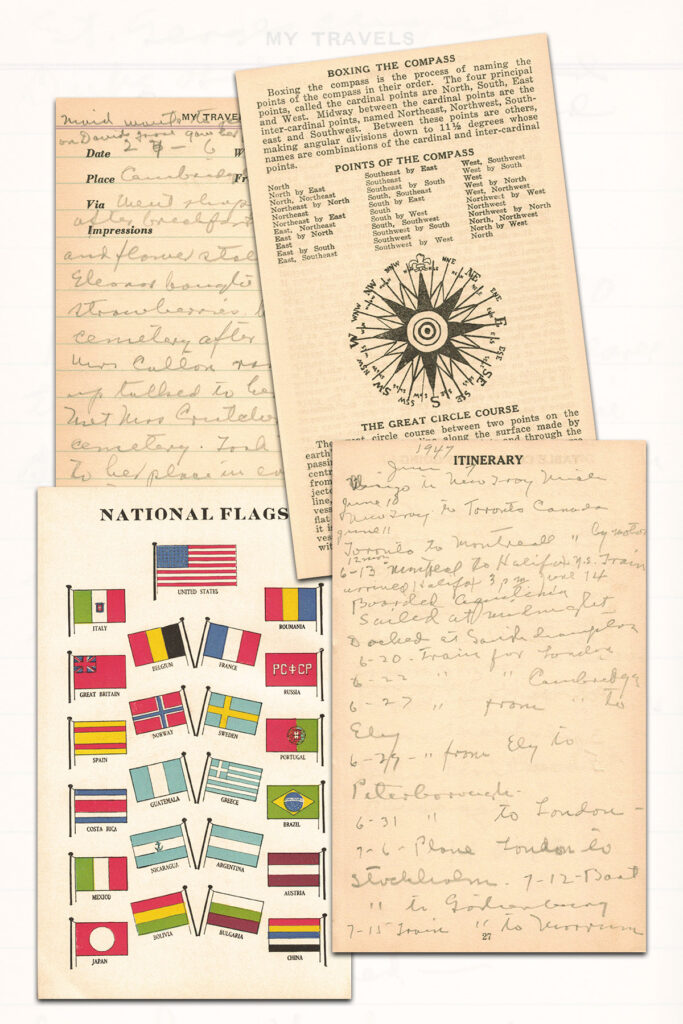 MY TRAVELS
MY TRAVEL
Date 2 - 6 W
Place Cambridge Fr
Via
after breakfast
Impressions
and flower
Eleanor bought
strawberries.
cemetery after
Mrs Cullon
up talked to he
Met Mrs
cemetery. Took
to her place in
BOXING THE COMPASS
Boxing the compass is the process of naming the
points of the compass in their order. The four principal
points, called the cardinal points are North, South, East
and West. Midway between the cardinal points are the
inter-cardinal points, named Northeast, Northwest, South-
east and Southwest. Between these points are others,
making angular divisions down to 11½ degrees whose
names are combinations of the cardinal and inter-cardinal
points.
POINTS OF THE COMPASS
North
North by East
North, Northeast
Northeast by North
Northeast
Northeast by East
East, Northeast
East by North
East
East by South
East, Southeast
Southeast by East
Southeast
Southeast by South
South, Southeast
South by East
South
South by West
South, Southwest
Southwest by South
Southwest
Southwest by West
West, Southwest
West by South
West
West by North
West, Northwest
Northwest by West
Northwest
Northwest by North
North, Northwest
North by West
North
NNW
NNE
NW
NE
WNW
ENE
W
E
WSW
ESE
SW
SE
SSW
SSE
S
THE GREAT CIRCLE COURSE
The great circle course between two points on the
earth
line along the surface made by
passi
and through the
centr
from
jecte
line,
vess
flat
it i
ves
wit
NATIONAL FLAGS
UNITED STATES
ITALY
ROUMANIA
BELGIUM
FRANCE
GREAT BRITAIN
РСФСР
RUSSIA
NORWAY
SWEDEN
SPAIN
PORTUGAL
GUATEMALA
GREECE
COSTA RICA
BRAZIL
NICARAGUA
ARGENTINA
MEXICO
AUSTRIA
BOLIVIA
BULGARIA
JAPAN
CHINA
1947
June 9
ITINERARY
to New Troy Mich
June 10
New Troy to Toronto Canada
June 11
Toronto to Montreall " by motor
6-13 Montreal to Halifax N.S. Train
arrived Halifax 3 pm June 14
Boarded Aquitania
Sailed at midnight
Docked at Southhampton
6-20- Train for London
6-22 " " Cambridge
6-27 " from " to
Ely
6-29- " from Ely to
Peterborough-
6-31 " to London-
7-6- Plane London to
Stockholm. 7-12-Boat
" to
7-15 Train " to
27